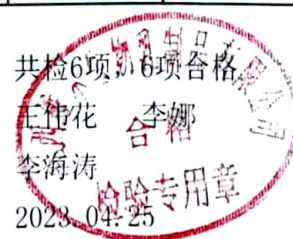 共检6项，6项合格
王伟花 李娜
李海涛
2023.04.25
合格
检验专用章